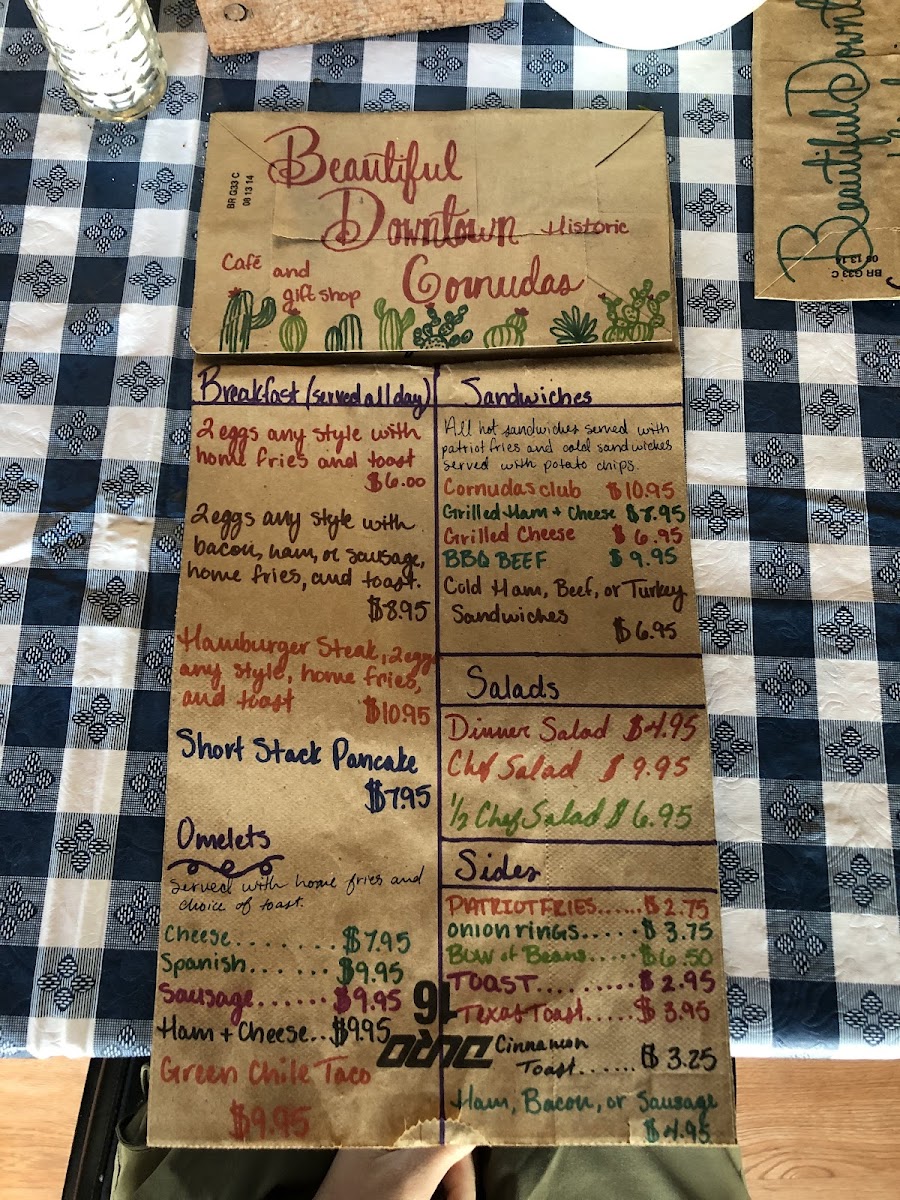 BR G33 C
08 13 14
Beautiful
Downtown Historic
Cornudas
Café and
gift shop
Breakfast (served all day)
2 eggs any style with
home fries and toast
$6.00
2 eggs any style with
bacon, ham, or sausage,
home fries, and toast.
$8.95
Hamburger Steak, 2 eggs
any style, home fries,
and toast
$10.95
Short Stack Pancake
$7.95
Omelets
served with home fries and
choice of toast.
Cheese........ $7.95
Spanish...... $9.95
Sausage....... $9.95
Ham + Cheese.. $9.95
Green Chile Taco
$9.95
Sandwiches
All hot sandwiches served with
patriot fries and cold sandwiches
served with potato chips.
Cornudas club $10.95
Grilled Ham + Cheese $8.95
Grilled Cheese $6.95
BBQ BEEF $9.95
Cold Ham, Beef, or Turkey
Sandwiches
$6.95
Salads
Dinner Salad $4.95
Chef Salad $9.95
1/2 Chef Salad $6.95
Sides
PATRIOT FRIES...... $2.75
onion rings..... $3.75
Bowl of Beans..... $6.50
TOAST......... $2.95
Texas Toast..... $3.95
Cinnamon
Toast...... $3.25
Ham, Bacon, or Sausage
$4.95
DURO
16
Beautiful Downt
BR G33 C
08 13 14